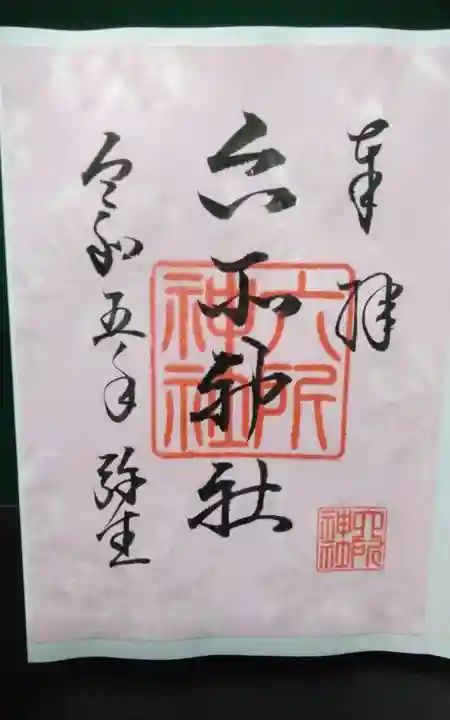 奉拝
六所神社
令和五年弥生
六所神社
六所神社